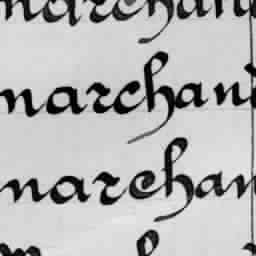 marchand
marchand
marchan